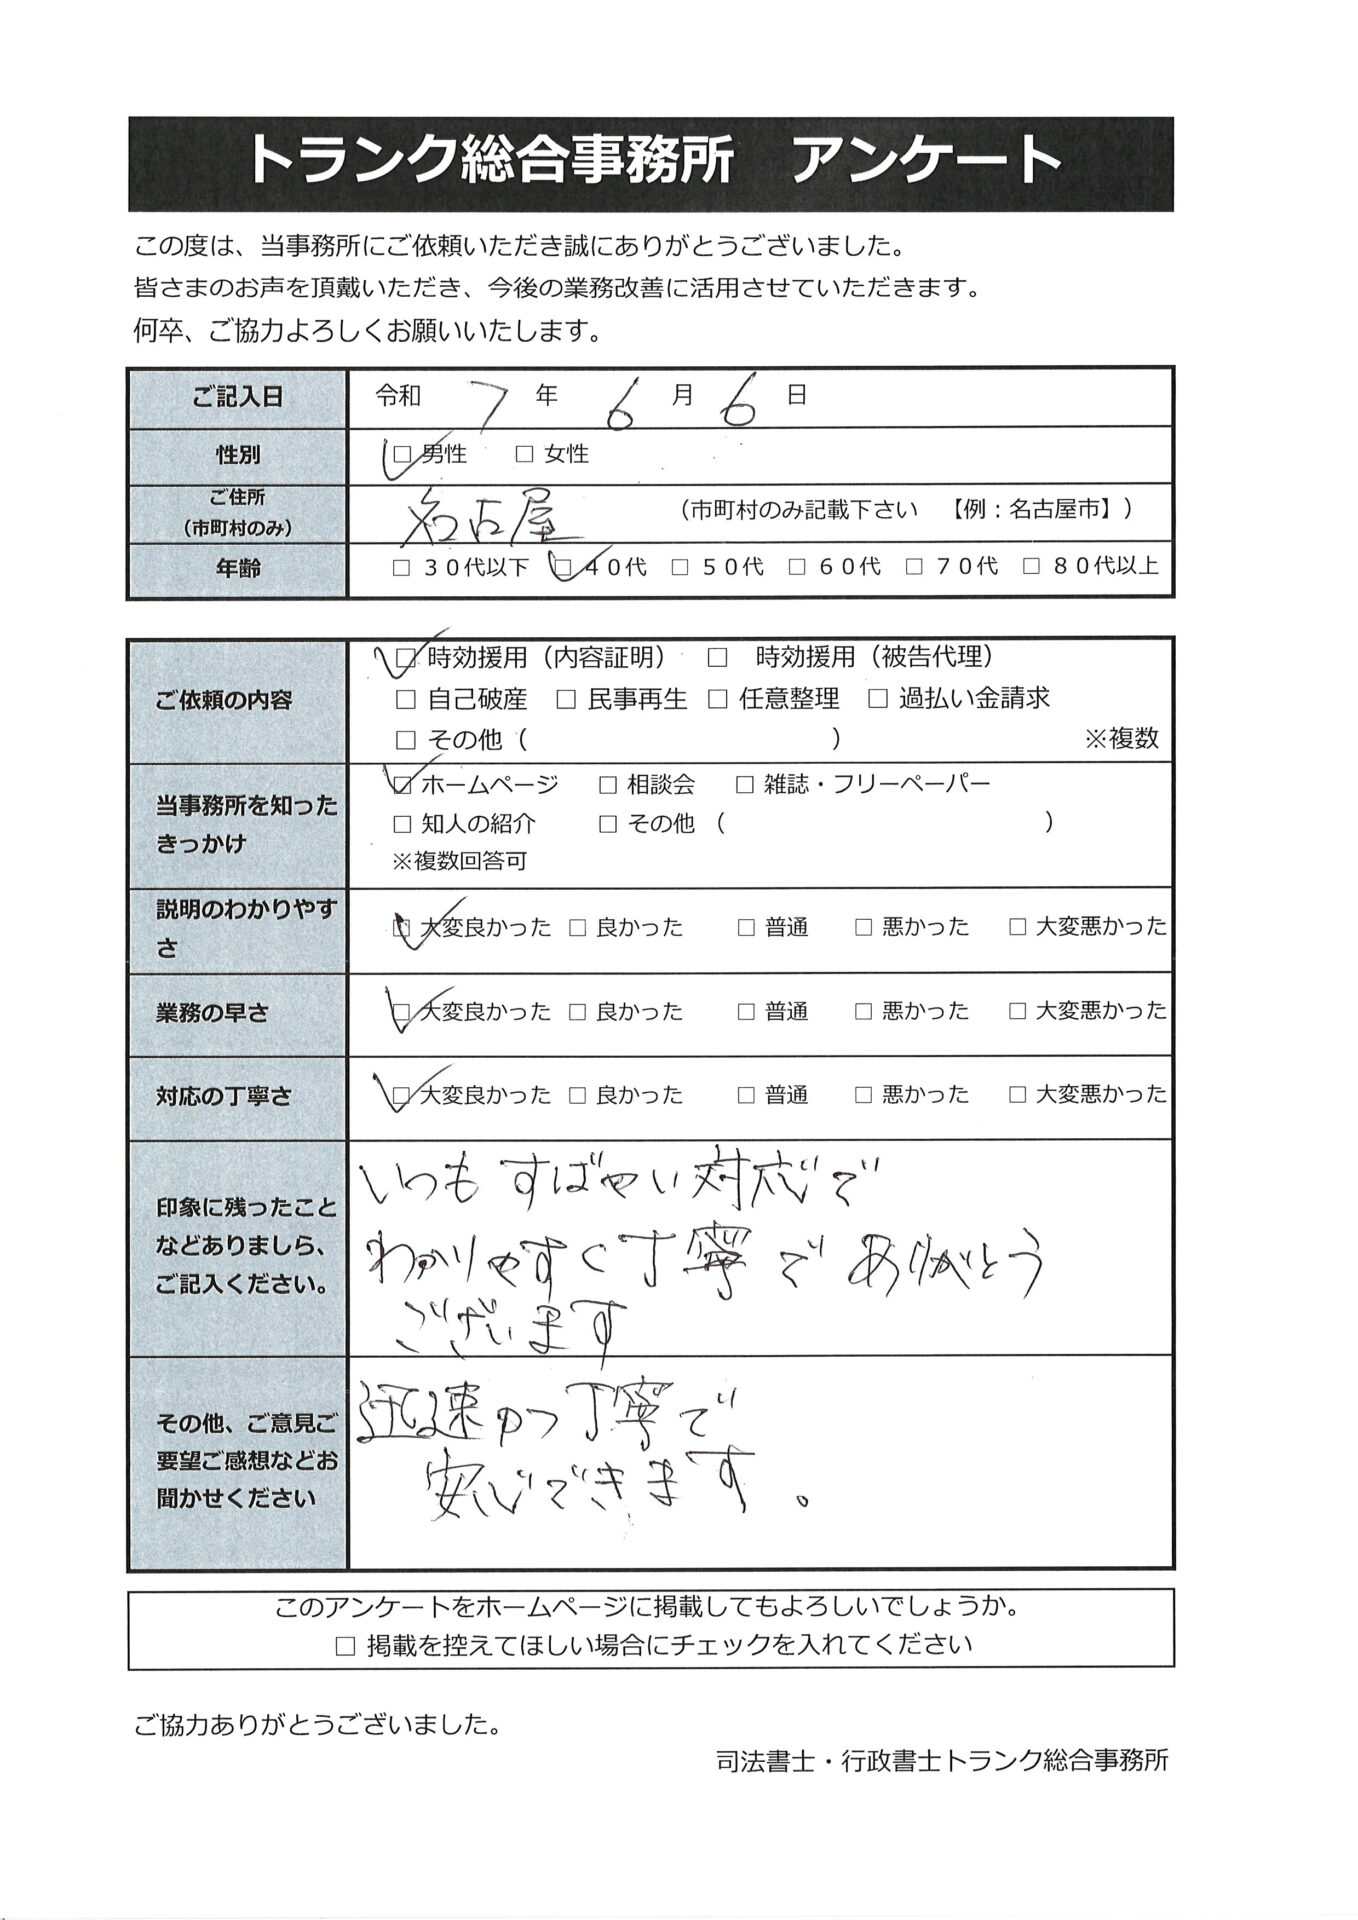 トランク総合事務所　アンケート
この度は、当事務所にご依頼いただき誠にありがとうございました。
皆さまのお声を頂戴いただき、今後の業務改善に活用させていただきます。
何卒、ご協力よろしくお願いいたします。
ご記入日 令和 7 年 6 月 6 日
性別 ☑ 男性 □ 女性
ご住所
（市町村のみ） 名古屋 （市町村のみ記載下さい　【例：名古屋市】）
年齢 □ ３０代以下 ☑ ４０代 □ ５０代 □ ６０代 □ ７０代 □ ８０代以上
ご依頼の内容
☑ 時効援用（内容証明） □ 時効援用（被告代理）
□ 自己破産 □ 民事再生 □ 任意整理 □ 過払い金請求
□ その他（　　　　　　　　　　） ※複数
当事務所を知った
きっかけ
☑ ホームページ □ 相談会 □ 雑誌・フリーペーパー
□ 知人の紹介 □ その他 （　　　　　　　　　　）
※複数回答可
説明のわかりやす
さ
☑ 大変良かった □ 良かった □ 普通 □ 悪かった □ 大変悪かった
業務の早さ ☑ 大変良かった □ 良かった □ 普通 □ 悪かった □ 大変悪かった
対応の丁寧さ ☑ 大変良かった □ 良かった □ 普通 □ 悪かった □ 大変悪かった
印象に残ったこと
などありましら、
ご記入ください。
いつもすばやい対応で
わかりやすく丁寧でありがとう
ございます
その他、ご意見ご
要望ご感想などお
聞かせください
迅速かつ丁寧で
安心できます。
このアンケートをホームページに掲載してもよろしいでしょうか。
□ 掲載を控えてほしい場合にチェックを入れてください
ご協力ありがとうございました。
司法書士・行政書士トランク総合事務所